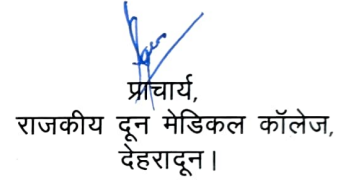 प्राचार्य,
राजकीय दून मेडिकल कॉलेज,
देहरादून।